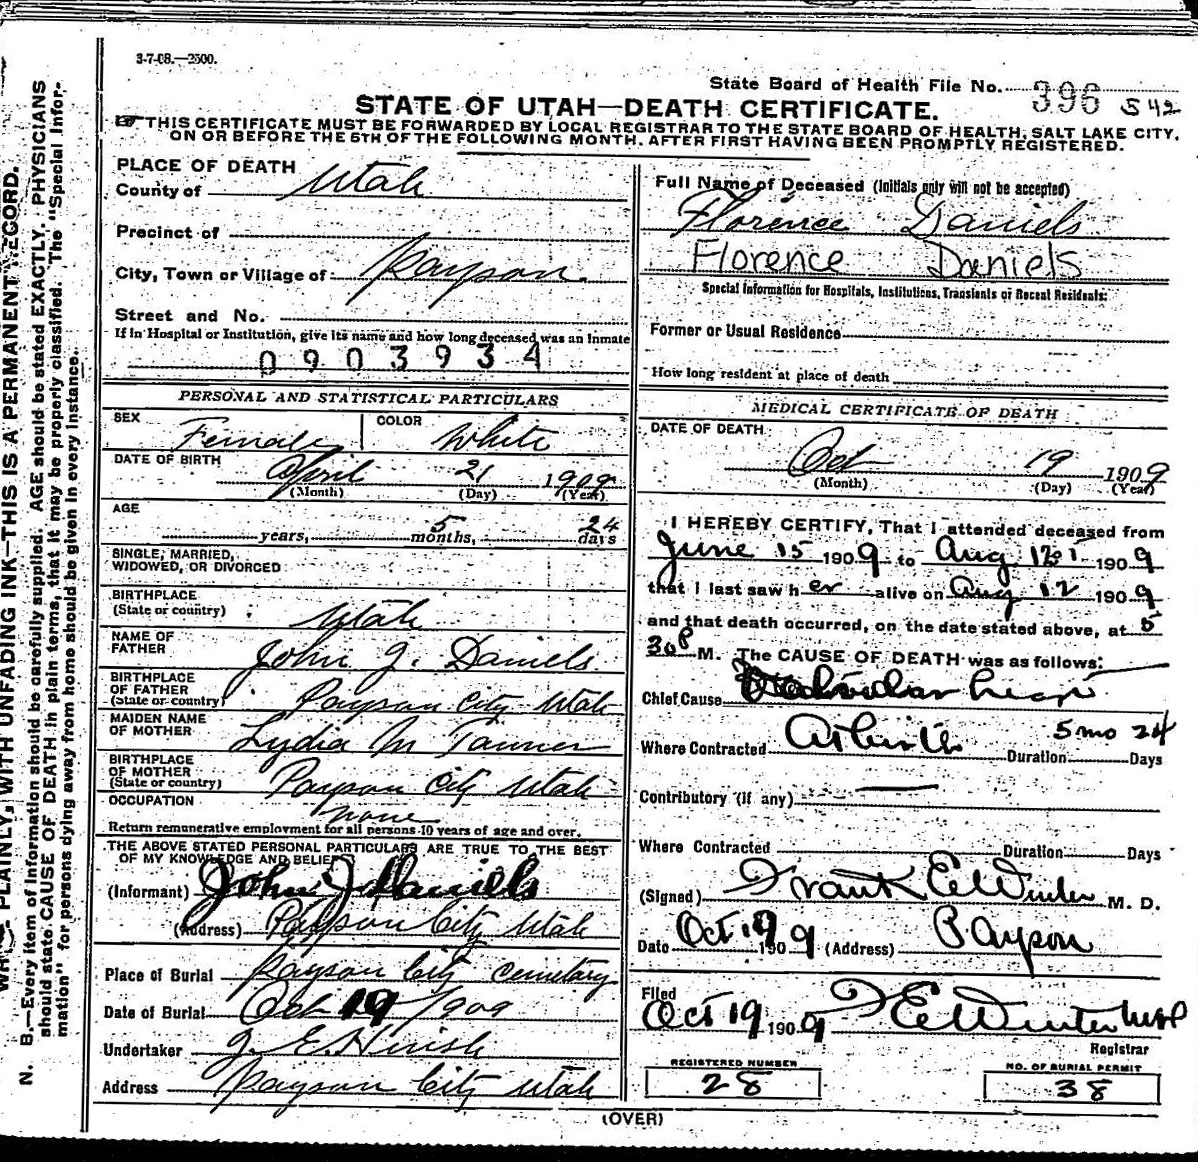 3-7-08.—2500.
State Board of Health File No. 396 S 42
STATE OF UTAH—DEATH CERTIFICATE.
THIS CERTIFICATE MUST BE FORWARDED BY LOCAL REGISTRAR TO THE STATE BOARD OF HEALTH, SALT LAKE CITY,
ON OR BEFORE THE 5TH OF THE FOLLOWING MONTH, AFTER FIRST HAVING BEEN PROMPTLY REGISTERED.
PLACE OF DEATH
County of Utah
Precinct of
City, Town or Village of Payson.
Street and No.
If in Hospital or Institution, give its name and how long deceased was an inmate
0903934
PERSONAL AND STATISTICAL PARTICULARS
SEX Female COLOR White
DATE OF BIRTH April 21 1909
(Month) (Day) (Year)
AGE
years, 5 months, 24 days
SINGLE, MARRIED,
WIDOWED, OR DIVORCED
BIRTHPLACE
(State or country) Utah
NAME OF
FATHER John J. Daniels
BIRTHPLACE
OF FATHER
(State or country) Payson City Utah
MAIDEN NAME
OF MOTHER Lydia M Tanner
BIRTHPLACE
OF MOTHER
(State or country) Payson City Utah
OCCUPATION none
Return remunerative employment for all persons 10 years of age and over.
THE ABOVE STATED PERSONAL PARTICULARS ARE TRUE TO THE BEST
OF MY KNOWLEDGE AND BELIEF
(Informant) John J Daniels
(Address) Payson City Utah
Place of Burial Payson City Cemetary
Date of Burial Oct 19 1909
Undertaker J. E.
Address Payson City Utah
Full Name of Deceased (Initials only will not be accepted)
Florence Daniels
Florence Daniels
Special Information for Hospitals, Institutions, Transients or Recent Residents:
Former or Usual Residence
How long resident at place of death
MEDICAL CERTIFICATE OF DEATH
DATE OF DEATH
Oct 19 1909
(Month) (Day) (Year)
I HEREBY CERTIFY, That I attended deceased from
June 15 1909 to Aug 12 1909
that I last saw her alive on Aug 12 1909
and that death occurred, on the date stated above, at 5
30 P M. The CAUSE OF DEATH was as follows:
Chief Cause
Where Contracted At birth Duration 5 mo 24 Days
Contributory (if any)
Where Contracted Duration Days
(Signed) Frank E Winter M. D.
Date Oct 19 1909 (Address) Payson
Filed
Oct 19 1909 F E Winter
Registrar
REGISTERED NUMBER
28
NO. OF BURIAL PERMIT
38
(OVER)
PLAINLY, WITH UNFADING INK—THIS IS A PERMANENT RECORD.
N. B.—Every item of information should be carefully supplied. AGE should be stated EXACTLY. PHYSICIANS
should state CAUSE OF DEATH in plain terms, that it may be properly classified. The "Special Infor-
mation" for persons dying away from home should be given in every instance.